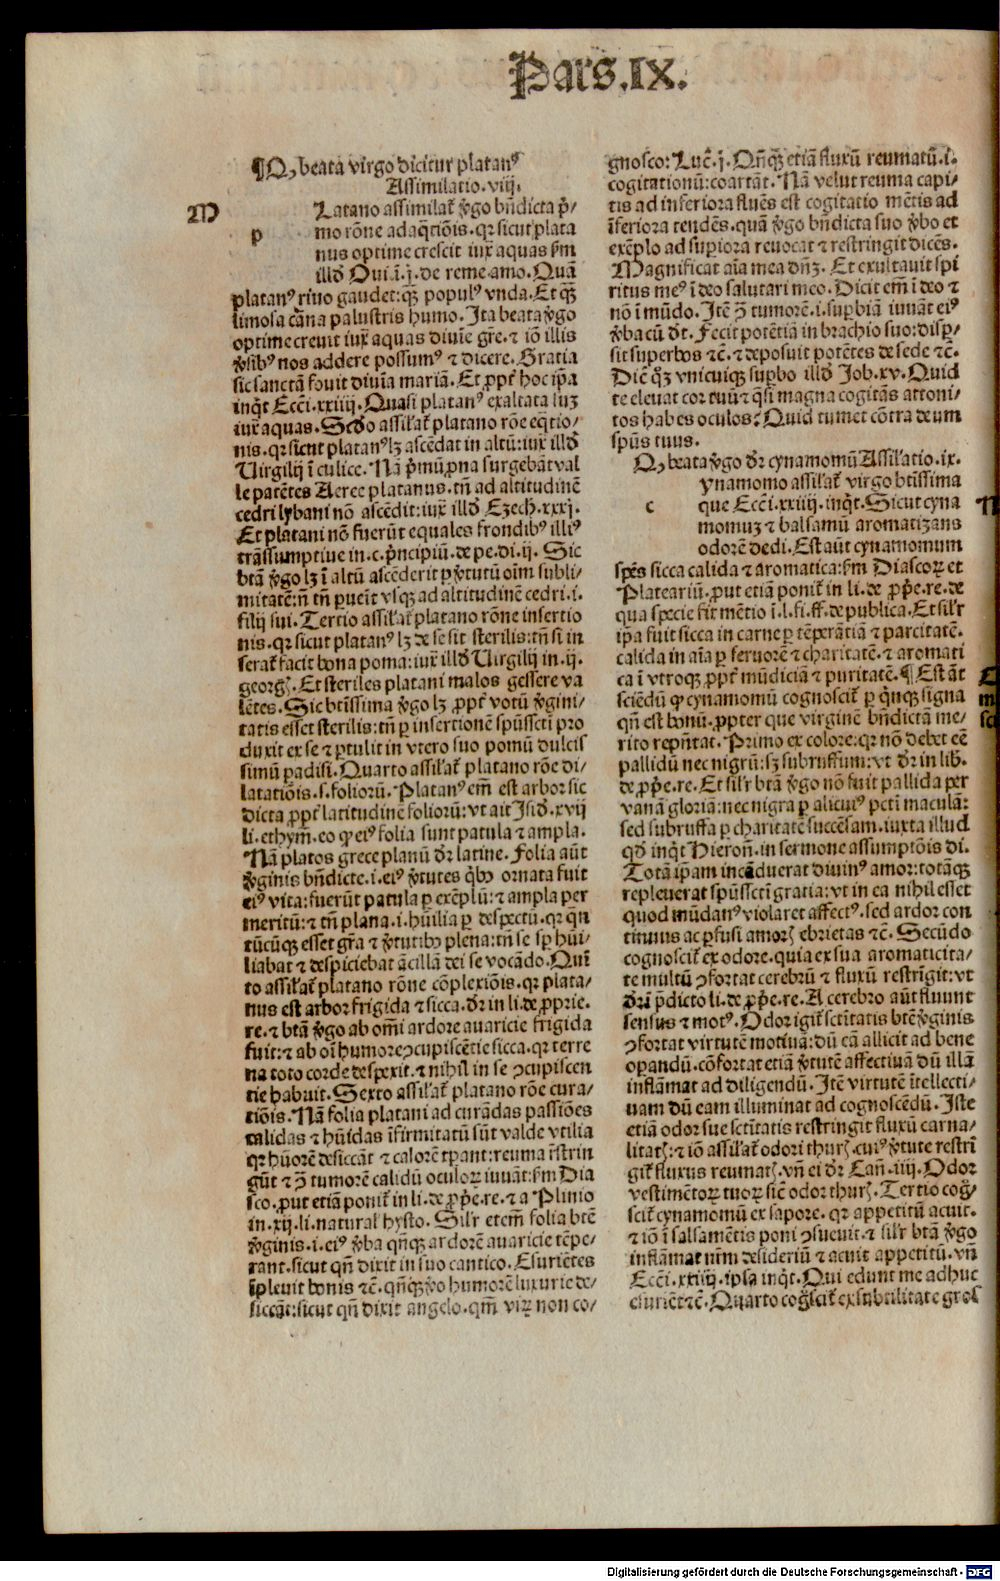 Pars.IX.
¶Q, beata virgo dicitur platanꝰ
Assimilatio.viij.
M
p
Latano assimilat᷑ ꝟgo bn̄dicta p̄⸗
mo rōne adaq̄tiōis.qꝛ sicut plata
nus optime crescit iuxͣ aquas ẜm
illđ Oui.ī.j.de reme.amo.Quā
platanꝰ riuo gaudet:qͣꝫ populꝰ vnda.Et qͣꝫ
limosa cāna palustris humo.Ita beata ꝟgo
optime creuit iuxͣ aquas diuīe gr̄e.⁊ iō illis
ꝟsibꝰ nos addere possumꝰ ⁊ dicere.Gratia
sic sanctā fouit diuīa mariā.Et ꝓpt̄ hoc ip̄a
inq̄t Ecci.xxiiij.Quasi platanꝰ exaltata suꝫ
iuxͣ aquas.Scđo assilat᷑ platano rōe eq̄tio⸗
nis.qꝛ sicut platanꝰ lꝫ ascēdat in altū:iuxͣ illđ
Uirgilij ī culice.Nā p̄mū ꝓna surgebāt val
le patētes Aeree platanus.tn̄ ad altitudinē
cedri lybani nō ascēdit:iuxͣ illđ Ezech.xxxj.
Et platani nō fuerūt equales frondibꝰ illiꝰ
trāssumptiue in.c.p̄ncipiū.de pe.di.ij. Sic
btā ꝟgo lꝫ ī altū ascēderit ꝑ ꝟtutū oīm subli⸗
mitatē:n̄ tn̄ ꝑueīt vsqꝫ ad altitudinē cedri.i.
filij sui.Tertio assilat᷑ platano rōne insertio
nis.qꝛ sicut platanꝰ lꝫ de se sit sterilis:tn̄ si in
serat᷑ facit bona poma:iuxͣ illđ Uirgilij in.ij.
georgꝭ.Et steriles platani malos gessere va
lētes.Sic btīssima ꝟgo lꝫ ꝓpt̄ votū ꝟgini⸗
tatis esset sterilis:tn̄ ꝑ insertionē spūssc̄ti pro
duxit ex se ⁊ ꝑtulit in vtero suo pomū dulcis
simū ꝑadisi.Quarto assilat᷑ platano rōe di⸗
latatiōis.s.foliorū.Platanꝰ em̄ est arbor sic
dicta ꝓpt̄ latitudinē foliorū:vt ait Isiđ.xvij
li.ethym̄.eo ꝙ eiꝰ folia sunt patula ⁊ ampla.
Nā platos grece planū dr̄ latine.Folia aūt
ꝟginis bn̄dicte.i.eiꝰ ꝟtutes qͥbꝫ ornata fuit
eiꝰ vita:fuerūt patula ꝑ exēplū:⁊ ampla per
meritū:⁊ tn̄ plana.i.hūilia ꝑ despectū.qꝛ qn̄
tūcūqꝫ esset gr̄a ⁊ ꝟtutibꝫ plena:tn̄ se sꝑ hūi⸗
liabat ⁊ despiciebat ācillā dei se vocādo.Quī
to assilat᷑ platano rōne cōplexiōis.qꝛ plata⸗
nus est arbor frigida ⁊ sicca.dr̄ in li.de proprie.
re.⁊ btā ꝟgo ab om̄i ardore auaricie frigida
fuit:⁊ ab oī humore ꝯcupiscētie sicca.qꝛ terre
na toto corde despexit.⁊ nihil in se ꝯcupiscen
tie habuit.Sexto assilat᷑ platano rōe cura⸗
tiōis.Nam folia platani ad curādas passiōes
calidas ⁊ hūidas īfirmitatū sūt valde vtilia
qꝛ hūorē desiccāt ⁊ calorē tꝑant:reuma īstrin
gūt ⁊ ꝯ̄ tumorē calidū oculoꝝ iuuāt:ẜm Dia
sco.put etiā ponit᷑ in li.de ꝓp̄e.re.⁊ a Plinio
in.xij.li.natural hysto.Sil'r etem̄ folia btē
ꝟginis.i.eiꝰ ꝟba qn̄qꝫ ardorē auaricie tēpe⸗
rant.sicut qn̄ dixit in suo cantico.Esuriētes
īpleuit bonis ⁊c̄.qn̄qꝫ ꝟo humorē luxurie de⸗
siccāt:sicut qn̄ dixit angelo.qm̄ viꝝ non co⸗
gnosco:Luc̄.j.Qn̄qꝫ etiā fluxū reumatū.i.
cogitationū:coartāt.Nā velut reuma capi⸗
tis ad inferiora fluēs est cogitatio mētis ad
īferiora tendēs.quā ꝟgo bn̄dicta suo ꝟbo et
exēplo ad suꝑiora reuocat ⁊ restringit dicēs.
Magnificat aīa mea dn̄ꝫ.Et exultauit spi
ritus meꝰ ī deo salutari meo.Dicit em̄ ī deo ⁊
nō ī mūdo.Itē ꝯ̄ tumorē.i.suꝑbiā iuuāt eiꝰ
ꝟba cū dt̄.Fecit potētiā in brachio suo:disꝑ⸗
sit superbos ⁊c̄.⁊ deposuit potētes de sede ⁊c̄.
Dic̄ qͦꝫ vnicuiqꝫ suꝑbo illđ Job.xv.Quid
te eleuat cor tuū ⁊ qͣsi magna cogitās attoni⸗
tos habes oculos?Quid tumet cōtra deum
spūs tuus.
Q, beata ꝟgo dr̄ cynamomū Assilatio.ix.
c
ynamomo assilat᷑ virgo btīssima
que Ecci.xxiiij.inq̄t.Sicut cyna
momuꝫ ⁊ balsamū aromatizans
odorē dedi.Est aūt cynamomum
spēs sicca calida ⁊ aromatica:ẜm Diascoꝝ et
Plateariū.put etiā ponit᷑ in li.de ꝓp̄e.re.de
qua specie fit mētio ī.l.fi.ff.de publica.Et sil'r
ip̄a fuit sicca in carne ꝑ tēperātiā ⁊ parcitatē.
calida in aīa ꝑ feruorē ⁊ charitatē.⁊ aromati
ca ī vtroqꝫ ꝓpt̄ mūdiciā ⁊ puritatē.¶Est āt
sciēdū ꝙ cynamomū cognoscit᷑ ꝑ qͥnqꝫ signa
qn̄ est bonū.propter que virginē bn̄dictā me⸗
rito rep̄ntat.Primo ex colore:qꝛ nō debet eē
pallidū nec nigrū:sꝫ subruffum:vt dr̄ in lib.
de ꝓp̄e.re.Et sil'r btā ꝟgo nō fuit pallida per
vanā gloriā:nec nigra ꝑ alicuiꝰ pcti maculā:
sed subruffa ꝑ charitatē succēsam.iuxta illud
qđ inq̄t Hieron̄.in sermone assumptōis di.
Totā ip̄am incāduerat diuinꝰ amor:totāqꝫ
repleuerat spūssc̄ti gratia:vt in ea nihil esset
quod mūdanꝰ violaret affectꝰ.sed ardor con
tinuus ac ꝑfusi amorꝭ ebrietas ⁊c̄.Secūdo
cognoscit᷑ ex odore.quia ex sua aromaticita⸗
te multū ꝯfortat cerebrū ⁊ fluxū restrīgit:vt
dr̄ ī p̄dicto li.de ꝓp̄e.re.A cerebro aūt fluunt
sensus ⁊ motꝰ.Odor igit᷑ sc̄titatis btē ꝟginis
ꝯfortat virtutē motiuā:dū eā allicit ad bene
oꝑandū.cōfortat etiā ꝟtutē affectiuā dū illā
inflāmat ad diligendū.Itē virtutē ītellecti⸗
uam dū eam illuminat ad cognoscēdū.Iste
etiā odor sue sc̄titatis restringit fluxū carna⸗
litatꝭ:⁊ iō assilat᷑ odori thurꝭ.cuiꝰ ꝟtute restrī
git᷑ fluxus reumatꝭ.vn̄ ei dr̄ Can̄.iiij.Odor
vestimētoꝝ tuoꝝ sic̄ odor thurꝭ.Tertio cog̊⸗
scit᷑ cynamomū ex sapore.qꝛ appetitū acuit.
⁊ iō ī salsamētis poni ꝯsueuit.⁊ sil'r btā ꝟgo
inflāmat nr̄m desideriū ⁊ acuit appetitū.vn̄
Ecci.xxiiij.ipsa inq̄t.Qui edunt me adhuc
esuriēt ⁊c̄.Quarto cog̊scit᷑ ex subtilitate gros
Digitalisierung gefördert durch die Deutsche Forschungsgemeinschaft - DFG